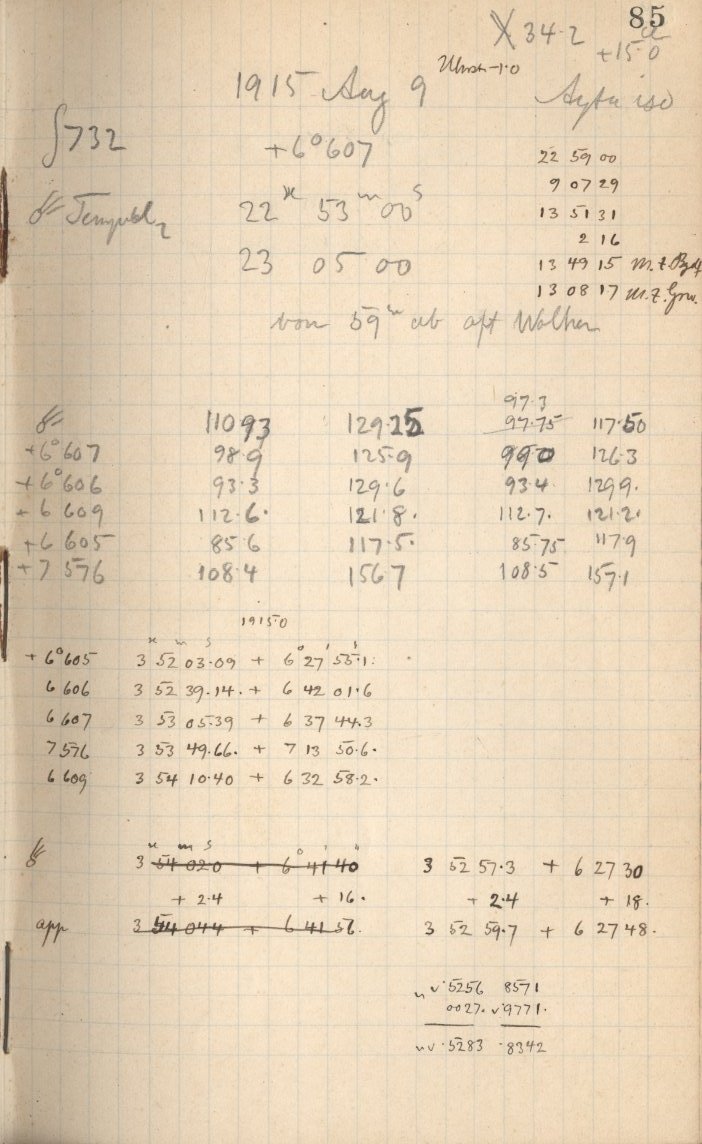 85
X 34.2 +15.0
1915 Aug 9
732
+6°607
22 59 00
9 07 29
22ʰ 53ᵐ 00ˢ
13 51 31
2 16
23 05 00
13 49 15
13 08 17 M.Z. Grw.
von 59ᵐ ab oft Wolken
97.3
110.93 129.25 97.75 117.50
+6°607 98.9 125.9 99.0 126.3
+6°606 93.3 129.6 93.4 129.9.
+6 609 112.6. 121.8. 112.7. 121.2.
+6 605 85.6 117.5. 85.75 117.9
+7 576 108.4 156.7 108.5 157.1
1915.0
h m s ° ' "
+6°605 3 52 03.09 + 6 27 55.1:
6 606 3 52 39.14. + 6 42 01.6
6 607 3 53 05.39 + 6 37 44.3
7 576 3 53 49.66. + 7 13 50.6.
6 609 3 54 10.40 + 6 32 58.2.
h m s ° ' "
3 54 02.0 + 6 41 40 3 52 57.3 + 6 27 30
+ 2.4 + 16. + 2.4 + 18.
app 3 54 04.4 + 6 41 56. 3 52 59.7 + 6 27 48.
.5256 8571
0027. 9771.
.5283 .8342